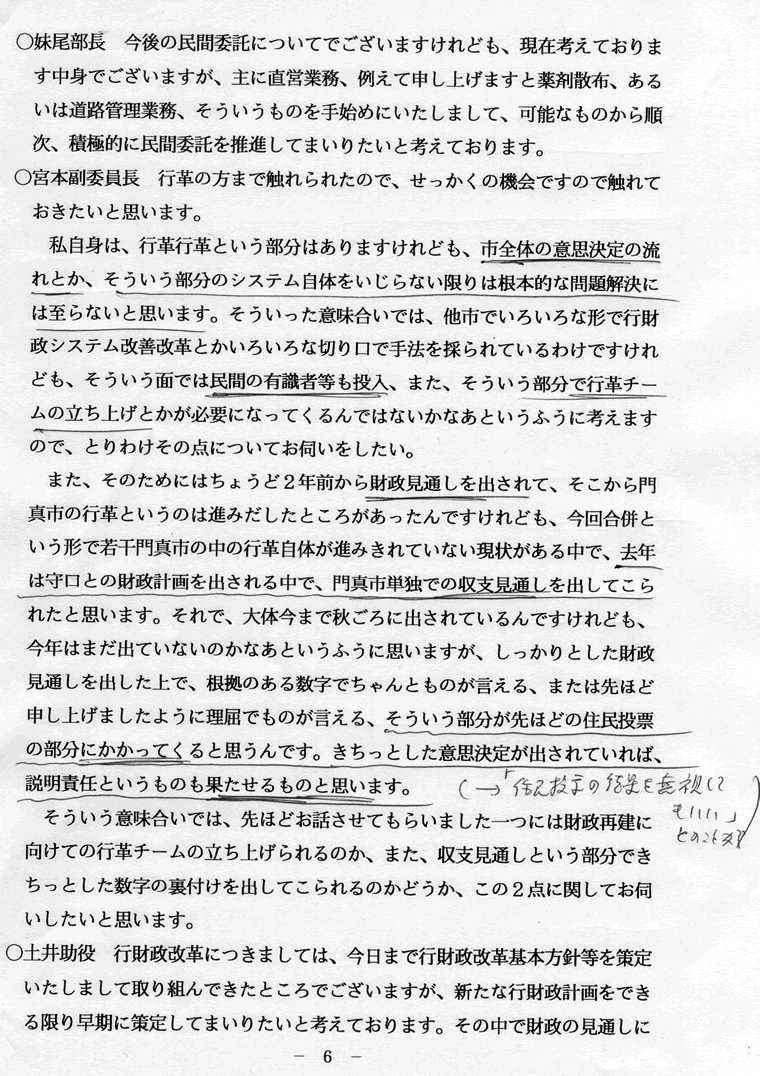 ○妹尾部長　今後の民間委託についてでございますけれども、現在考えておりま
す中身でございますが、主に直営業務、例えて申し上げますと薬剤散布、ある
いは道路管理業務、そういうものを手始めにいたしまして、可能なものから順
次、積極的に民間委託を推進してまいりたいと考えております。
○宮本副委員長　行革の方まで触れられたので、せっかくの機会ですので触れて
おきたいと思います。
私自身は、行革行革という部分はありますけれども、市全体の意思決定の流
れとか、そういう部分のシステム自体をいじらない限りは根本的な問題解決に
は至らないと思います。そういった意味合いでは、他市でいろいろな形で行財
政システム改善改革とかいろいろな切り口で手法を採られているわけですけれ
ども、そういう面では民間の有識者等も投入、また、そういう部分で行革チー
ムの立ち上げとかが必要になってくるんではないかなあというふうに考えます
ので、とりわけその点についてお伺いをしたい。
また、そのためにはちょうど２年前から財政見通しを出されて、そこから門
真市の行革というのは進みだしたところがあったんですけれども、今回合併と
いう形で若干門真市の中の行革自体が進みきれていない現状がある中で、去年
は守口との財政計画を出される中で、門真市単独での収支見通しを出してこら
れたと思います。それで、大体今まで秋ごろに出されているんですけれども、
今年はまだ出ていないのかなあというふうに思いますが、しっかりとした財政
見通しを出した上で、根拠のある数字でちゃんとものが言える、または先ほど
申し上げましたように理屈でものが言える、そういう部分が先ほどの住民投票
の部分にかかってくると思うんです。きちっとした意思決定が出されていれば、
説明責任というものも果たせるものと思います。
（→「住民投票の結果を無視して
もいい」
とのこと
そういう意味合いでは、先ほどお話させてもらいました一つには財政再建に
向けての行革チームの立ち上げられるのか、また、収支見通しという部分でき
ちっとした数字の裏付けを出してこられるのかどうか、この２点に関してお伺
いしたいと思います。
○土井助役　行財政改革につきましては、今日まで行財政改革基本方針等を策定
いたしまして取り組んできたところでございますが、新たな行財政計画をでき
る限り早期に策定してまいりたいと考えております。その中で財政の見通しに
－ 6 －